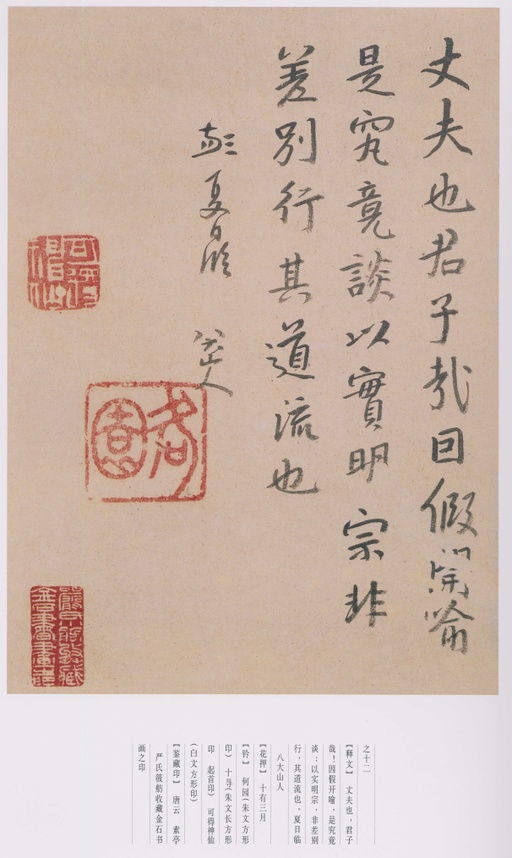 丈夫也君子哉因假開喻
是究竟談以實明宗非
差別行其道流也
夏日臨 八大山人
可得神仙
何園
之十二
【释文】 丈夫也，君子
哉！因假开喻，是究竟
谈；以实明宗，非差别
行，其道流也，夏日临
八大山人
【花押】 十有三月
【钤】 何园（朱文方形
印） 十（朱文长方形
印 起首印） 可得神仙
（白文方形印）
【鉴藏印】 唐云 素亭
严氏筱舫收藏金石书
画之印